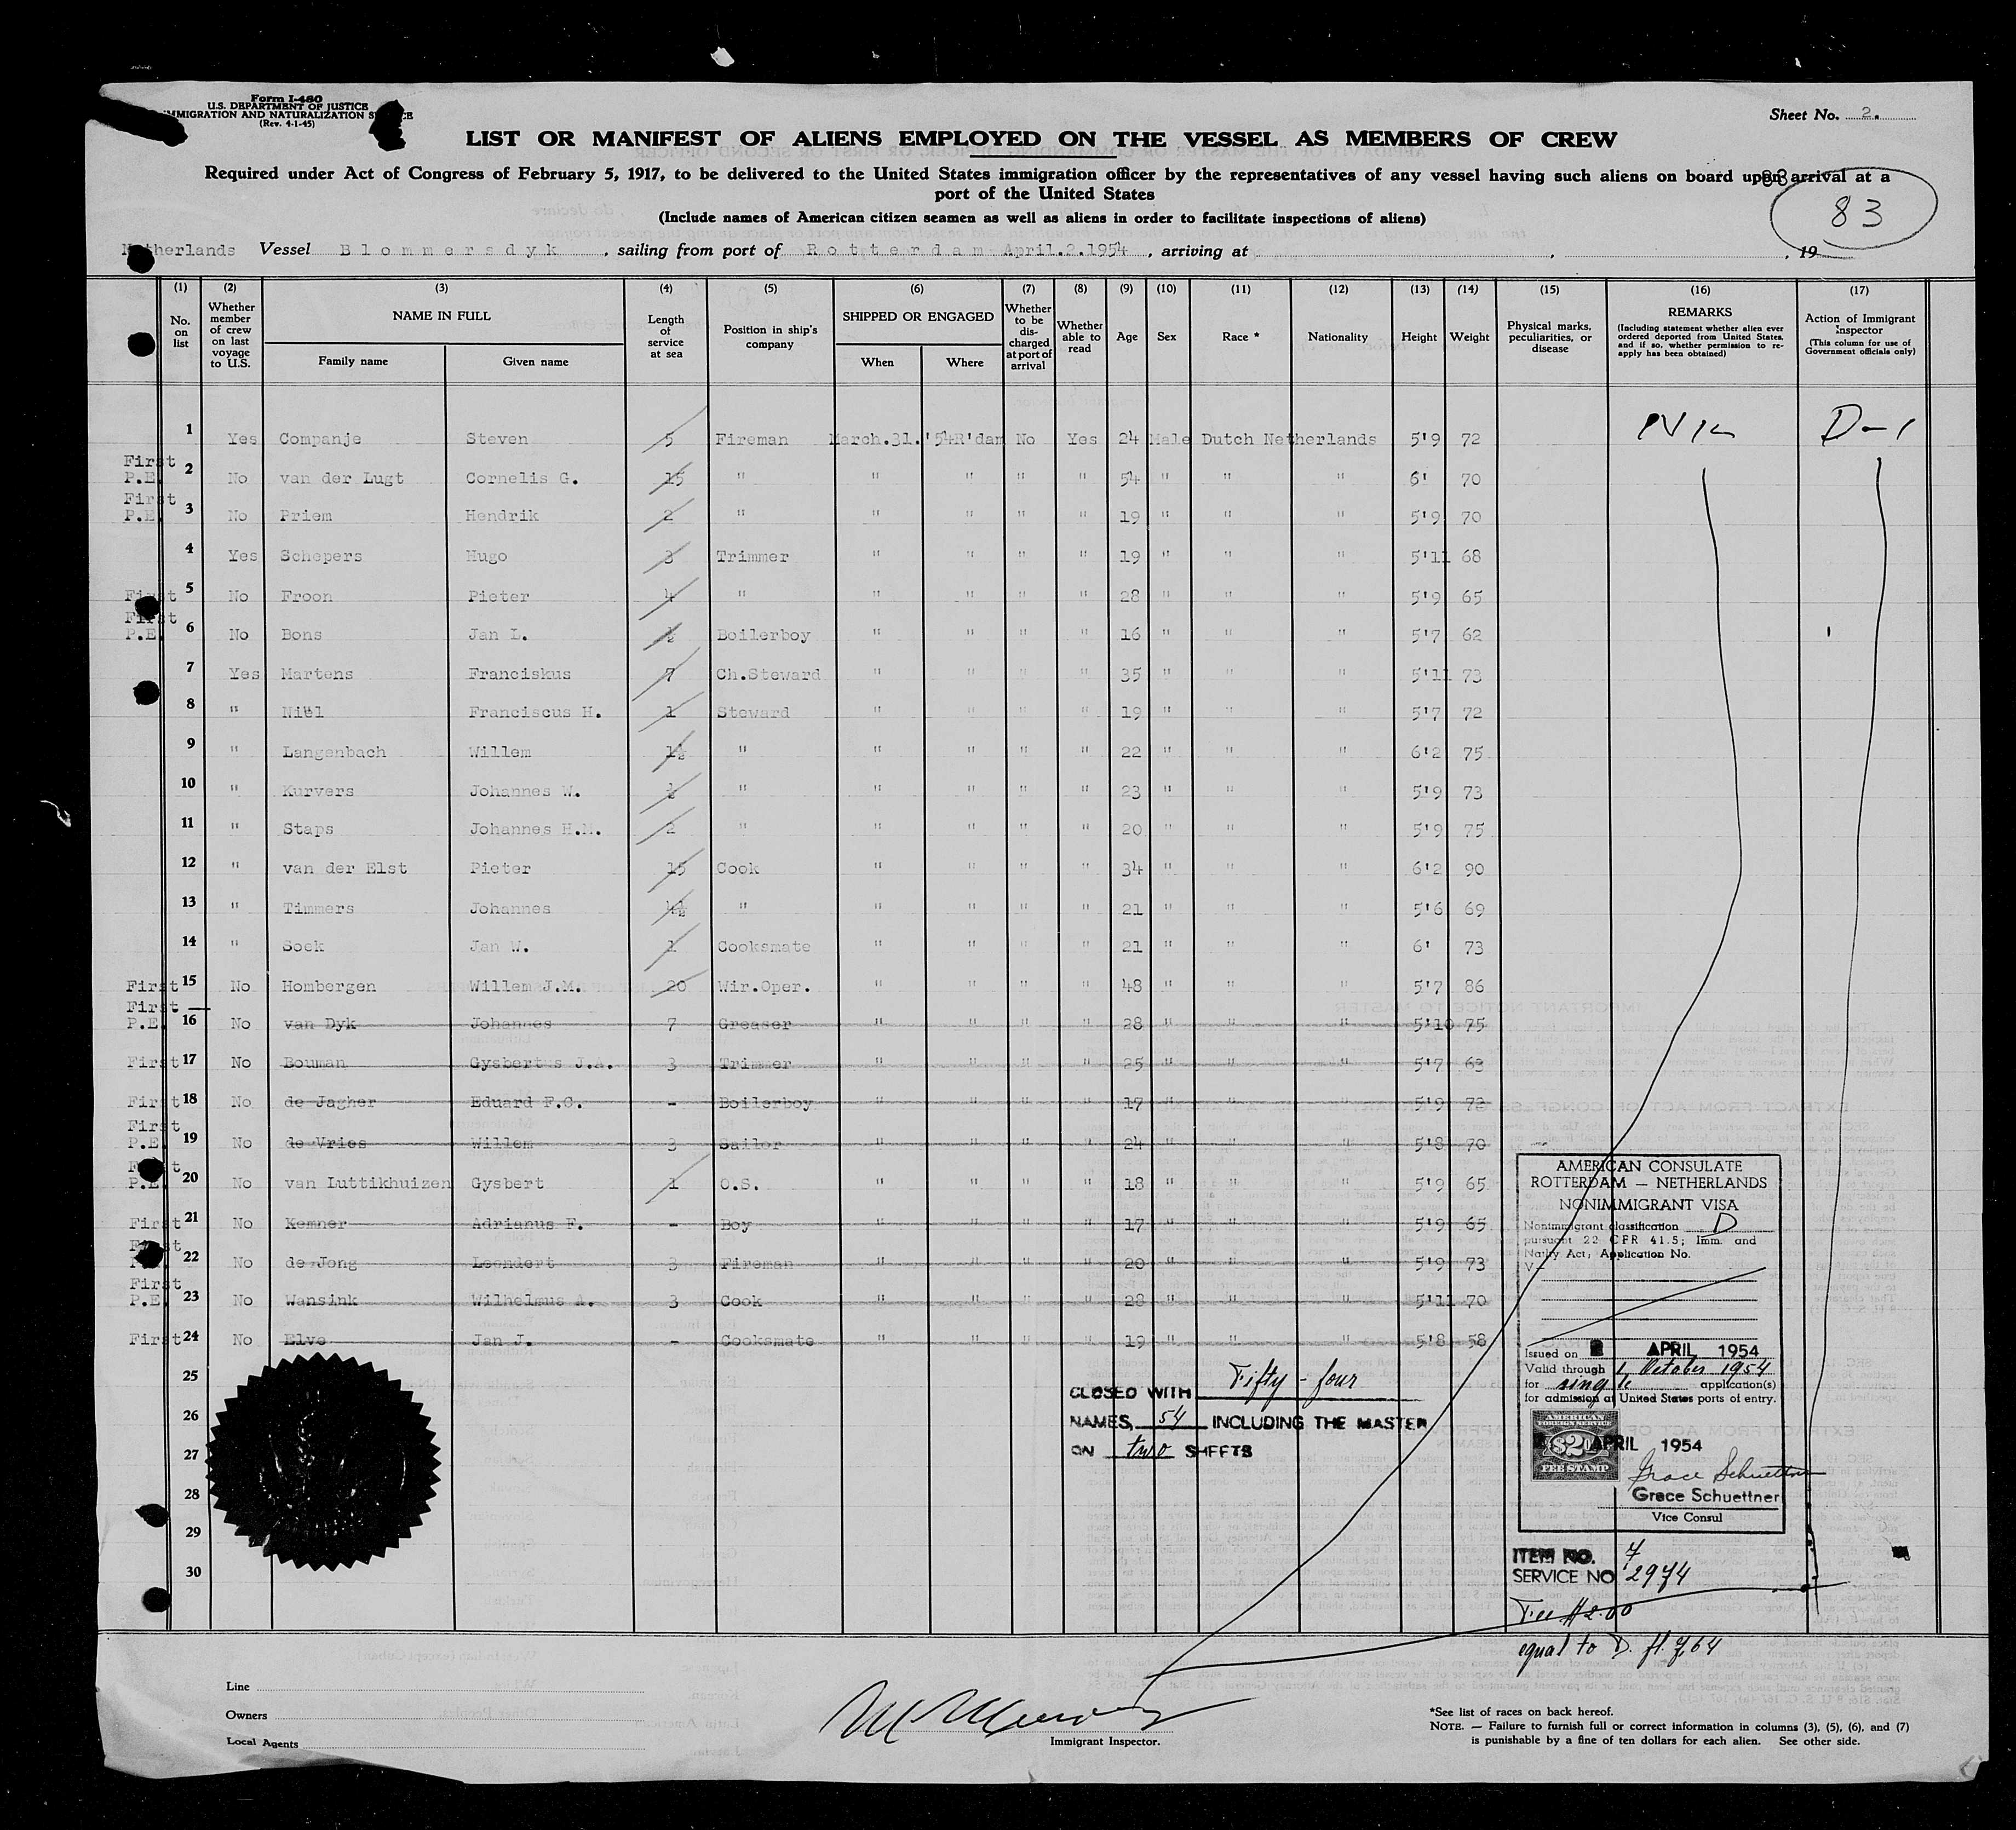 Form I-480
U.S. DEPARTMENT OF JUSTICE
IMMIGRATION AND NATURALIZATION
(Rev. 4-1-45)
Sheet No. 2.
LIST OR MANIFEST OF ALIENS EMPLOYED ON THE VESSEL AS MEMBERS OF CREW
Required under Act of Congress of February 5, 1917, to be delivered to the United States immigration officer by the representatives of any vessel having such aliens on board upon arrival at a
port of the United States
83
83
(Include names of American citizen seamen as well as aliens in order to facilitate inspections of aliens)
Netherlands Vessel Blommersdyk, sailing from port of Rotterdam April.2.1954, arriving at , , 19
(1) No. on list (2) Whether member of crew on last voyage to U.S. (3) NAME IN FULL Family name Given name (4) Length of service at sea (5) Position in ship's company (6) SHIPPED OR ENGAGED When Where (7) Whether to be dis-charged at port of arrival (8) Whether able to read (9) Age (10) Sex (11) Race * (12) Nationality (13) Height (14) Weight (15) Physical marks, peculiarities, or disease (16) REMARKS (Including statement whether alien ever ordered deported from United States, and if so, whether permission to re-apply has been obtained) (17) Action of Immigrant Inspector (This column for use of Government officials only)
1 Yes Companje Steven 5 Fireman March.31.'54 R'dam No Yes 24 Male Dutch Netherlands 5'9 72 D-1
First P.E. 2 No van der Lugt Cornelis G. 15 " " " " " 54 " " " 6' 70
First P.E. 3 No Priem Hendrik 2 " " " " " 19 " " " 5'9 70
4 Yes Schepers Hugo 3 Trimmer " " " " 19 " " " 5'11 68
First 5 No Froon Pieter 4 " " " " " 28 " " " 5'9 65
First P.E. 6 No Bons Jan L. ½ Boilerboy " " " " 16 " " " 5'7 62
7 Yes Martens Franciskus 7 Ch.Steward " " " " 35 " " " 5'11 73
8 " Niël Franciscus H. 1 Steward " " " " 19 " " " 5'7 72
9 " Langenbach Willem 1½ " " " " " 22 " " " 6'2 75
10 " Kurvers Johannes W. ½ " " " " " 23 " " " 5'9 73
11 " Staps Johannes H.M. 2 " " " " " 20 " " " 5'9 75
12 " van der Elst Pieter 15 Cook " " " " 34 " " " 6'2 90
13 " Timmers Johannes 4½ " " " " " 21 " " " 5'6 69
14 " Sock Jan W. 1 Cooksmate " " " " 21 " " " 6' 73
First 15 No Hombergen Willem J.M. 20 Wir.Oper. " " " " 48 " " " 5'7 86
First P.E. 16 No van Dyk Johannes 7 Greaser " " " " 28 " " " 5'10 75
First 17 No Bouman Gysbertus J.A. 3 Trimmer " " " " 25 " " " 5'7 63
First 18 No de Jagher Eduard F.C. - Boilerboy " " " " 17 " " " 5'9 72
First P.E. 19 No de Vries Willem 3 Sailor " " " " 24 " " " 5'8 70
First P.E. 20 No van Luttikhuizen Gysbert 1 O.S. " " " " 18 " " " 5'9 65
First 21 No Kemner Adrianus F. - Boy " " " " 17 " " " 5'9 65
First 22 No de Jong Leendert 3 Fireman " " " " 20 " " " 5'9 73
First P.E. 23 No Wansink Wilhelmus A. 3 Cook " " " " 28 " " " 5'11 70
First 24 No Elve Jan J. - Cooksmate " " " " 19 " " " 5'8 58
25
26
27
28
29
30
CLOSED WITH Fifty-four
NAMES, 54 INCLUDING THE MASTER
ON two SHEETS
AMERICAN CONSULATE
ROTTERDAM — NETHERLANDS
NONIMMIGRANT VISA
Nonimmigrant classification D
pursuant 22 CFR 41.5; Imm. and
Nat'y Act; Application No.
V-
Issued on 2 APRIL 1954
Valid through 1 October 1954
for single application(s)
for admission at United States ports of entry.
AMERICAN
FOREIGN SERVICE
$2
FEE STAMP
APRIL 1954
Grace Schuettner
Grace Schuettner
Vice Consul
ITEM NO. 7
SERVICE NO 2974
Fee $2.00
equal to D. fl. 7,64
Line
Owners
Local Agents
Immigrant Inspector.
*See list of races on back hereof.
NOTE. — Failure to furnish full or correct information in columns (3), (5), (6), and (7)
is punishable by a fine of ten dollars for each alien. See other side.